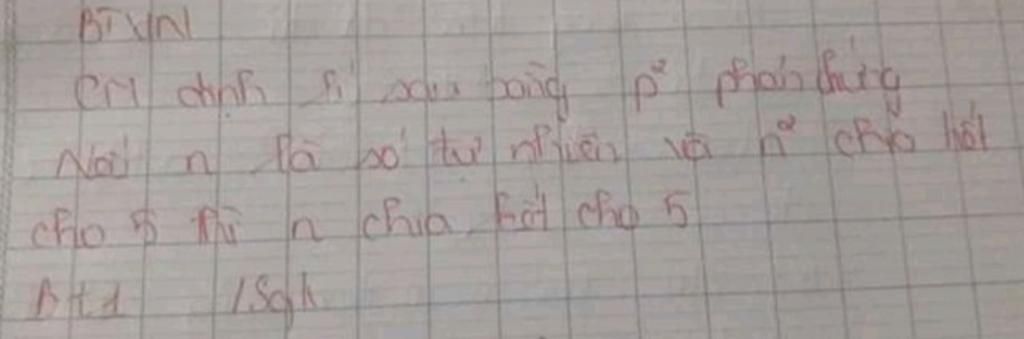 BTVN
CM định lí sau bằng p² phản chứng
Nếu n là số tự nhiên và n² chia hết
cho 5 thì n chia hết cho 5
/Sgk